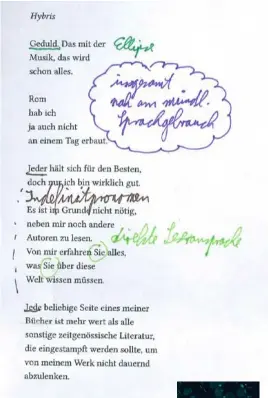 Hybris
Geduld. Das mit der Ellipse
Musik, das wird
schon alles.
insgesamt
nah am mündl.
Sprachgebrauch
Rom
hab ich
ja auch nicht
an einem Tag erbaut.
Jeder hält sich für den Besten,
doch nur ich bin wirklich gut.
Indefinitpronomen
Es ist im Grunde nicht nötig,
neben mir noch andere
Autoren zu lesen. direkte Leseransprache
Von mir erfahren Sie alles,
was Sie über diese
Welt wissen müssen.
Jede beliebige Seite eines meiner
Bücher ist mehr wert als alle
sonstige zeitgenössische Literatur,
die eingestampft werden sollte, um
von meinem Werk nicht dauernd
abzulenken.